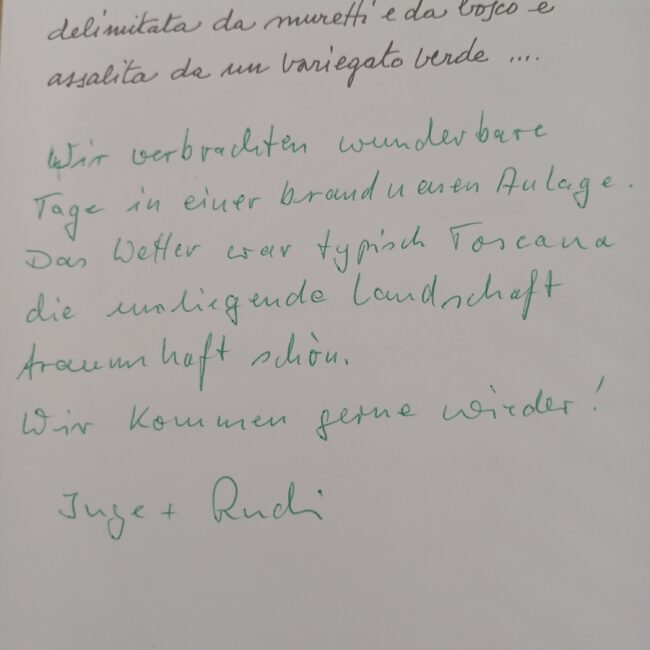 delimitata da muretti e da bosco e
assalita da un variegato verde ....
Wir verbrachten wunderbare
Tage in einer brandneuen Anlage.
Das Wetter war typisch Toscana
die umliegende Landschaft
traumhaft schön.
Wir kommen gerne wieder!
Inge + Rudi